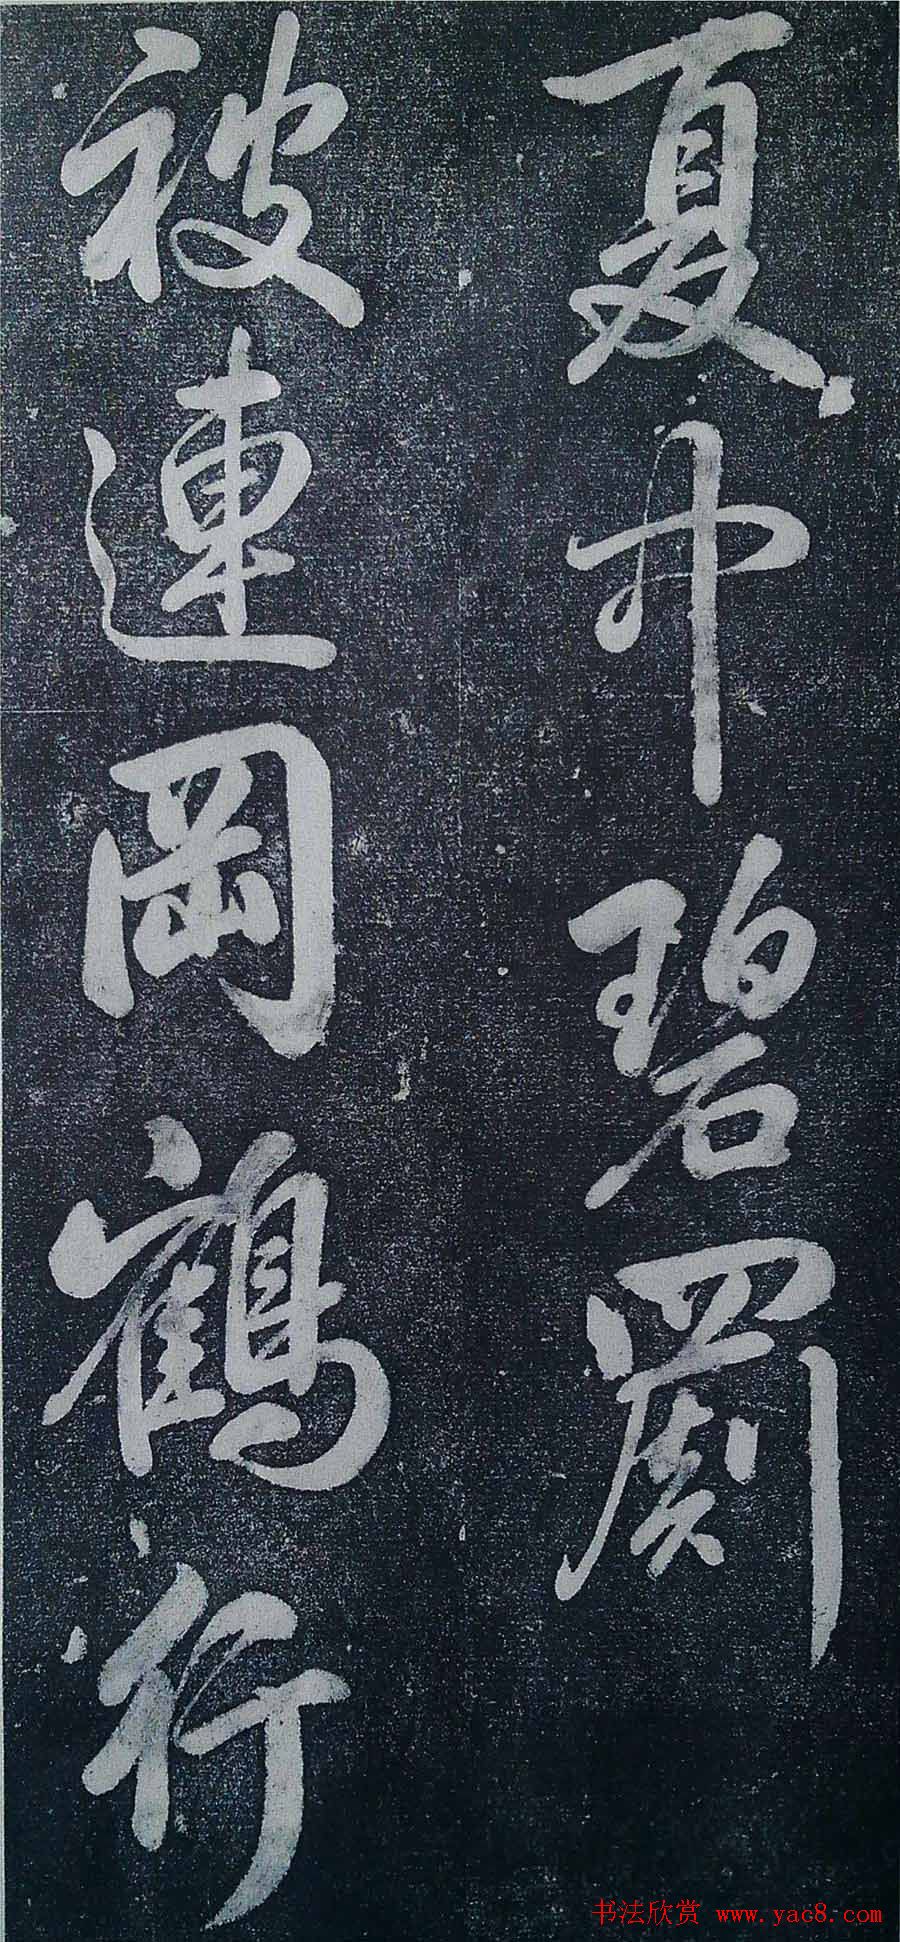 夏碧罽
被連岡鶴行
书法欣赏 www.yac8.com